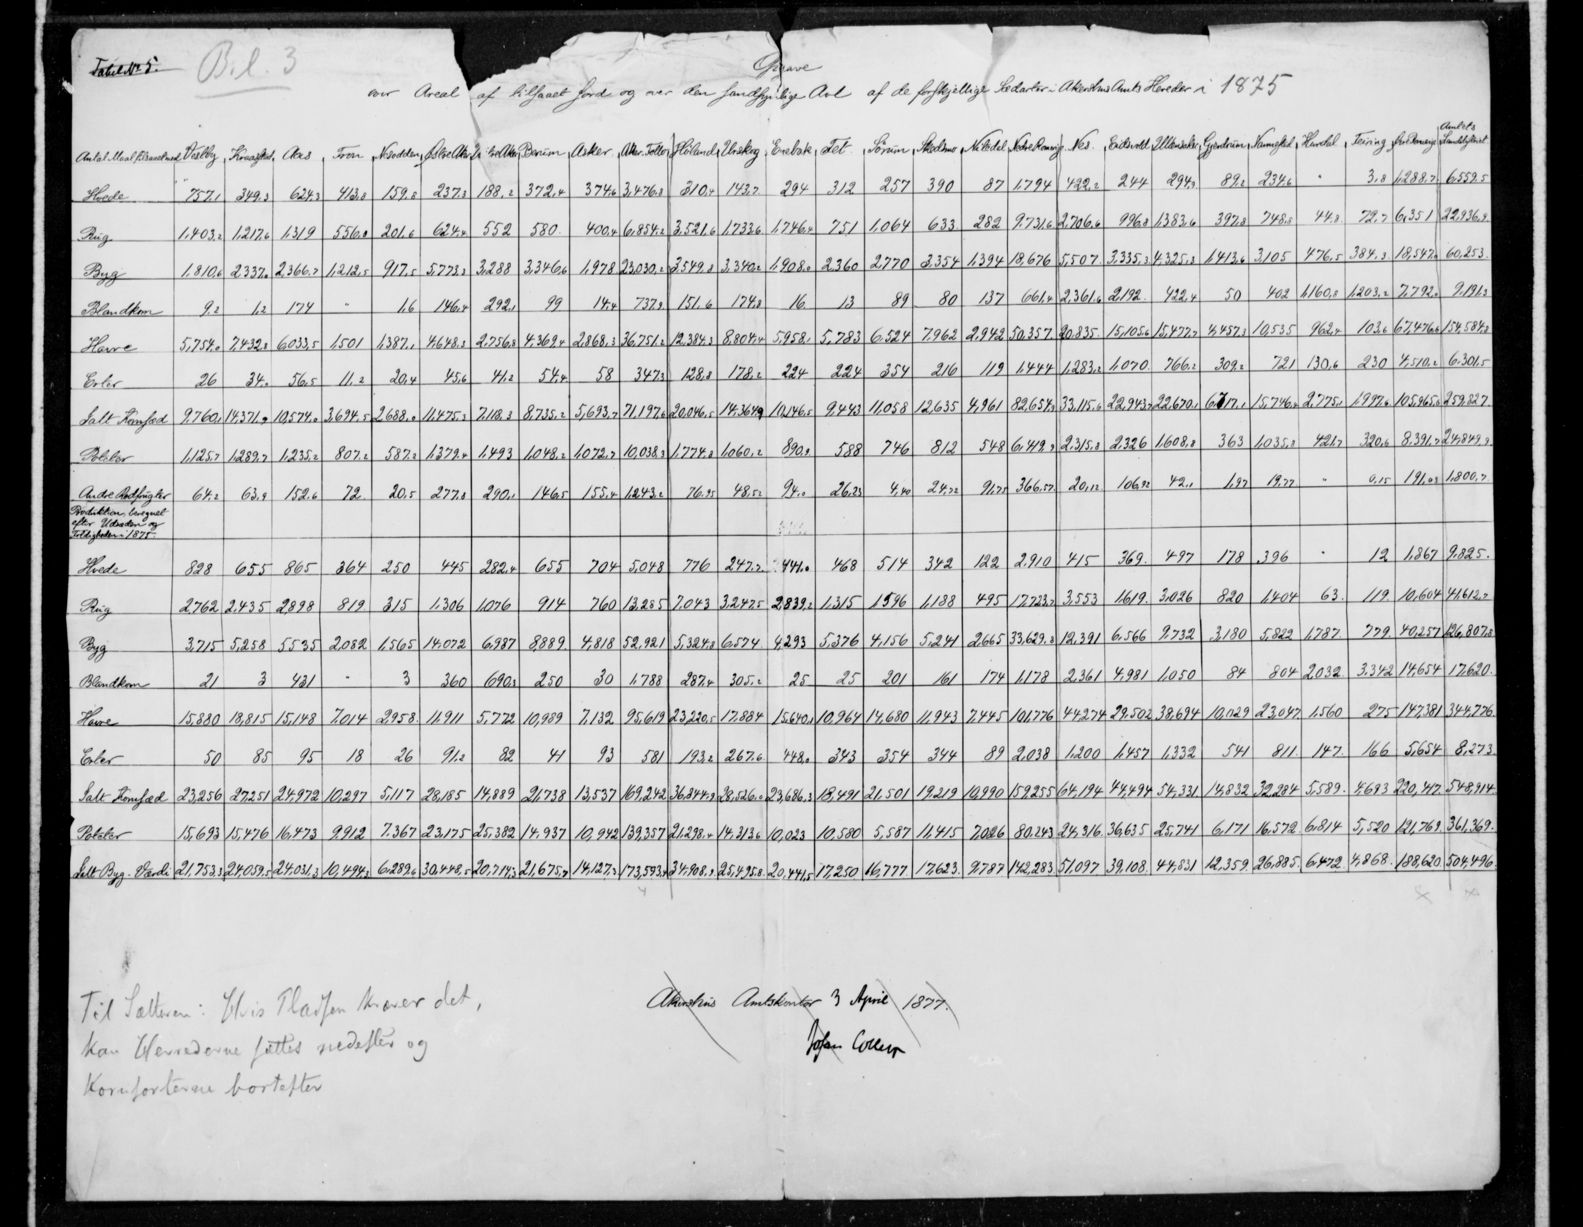 Tabel No 5.
Bil. 3
Opgave
over Areal af tilsaaet Jord og over den sandsynlige Avl af de forskjellige Sædarter i Akershus Amts Hereder i 1875
Antal Maal tilsaaet med Vestby Kraakstad Aas Fron Nesodden Østre Aker V. Aker Bærum Asker Aker Follo Høland Urskog Enebak Fet Sørum Skedsmo Nitedal Nedre Romerig Nes Eidsvold Ullensaker Gjerdrum Nannestad Hurdal Feiring Øvre Romerig Amtets Landdistrict
Hvede 757,1 349,3 624,3 413,8 159,8 237,3 188,2 372,4 374,6 3,476,8 310,4 143,7 294 312 257 390 87 1,794 422,2 244 294,3 89,2 234,6 " 3,8 1,288,7 6,559,5
Rug 1,403,2 1,217,6 1,319 556,8 201,6 624,4 552 580 400,4 6,854,2 3,521,6 1,733,6 1,746,4 751 1,064 633 282 9,731,6 2,706,6 996,8 1,383,6 397,8 748,8 44,8 72,7 6,351 22,936,9
Byg 1,810,6 2,337,0 2,366,7 1,212,5 917,5 5,773,3 3,288 3,346,6 1,978 23,030,2 3,549,8 3,340,2 1,908,0 2,360 2,770 3,354 1,394 18,676 5,507 3,335,3 4,325,3 1,413,6 3,105 476,5 384,3 18,547,0 60,253
Blandkorn 9,2 1,2 174 " 1,6 146,4 292,1 99 14,4 737,9 151,6 174,8 16 13 89 80 137 661,4 2,361,6 2,192 422,4 50 402 1,160,8 1,203,2 7,792,0 9,191,3
Havre 5,754,0 7,432,8 6,033,5 1,501 1,387,1 4,648,3 2,756,8 4,369,4 2,868,3 36,751,2 12,384,3 8,804,4 5,958,1 5,783 6,524 7,962 2,942 50,357 20,835 15,105,6 15,477,7 4,457,3 10,535 962,4 103,6 67,476,6 154,584,8
Erter 26 34,0 56,5 11,2 20,4 45,6 41,2 54,4 58 347,3 128,8 178,2 224 224 354 216 119 1,444 1,283,2 1,070 766,2 309,2 721 130,6 230 4,510,2 6,301,5
Salt Kornsæd 9,760,1 14,371,9 10,574,0 3,694,5 2,688,0 11,475,3 7,118,3 8,735,2 5,693,7 71,197,6 20,046,5 14,364,9 10,146,5 9,443 11,058 12,635 4,961 82,654,9 33,115,6 22,943,7 22,670,1 6,717,1 15,746,4 2,775,1 1,997,6 105,965,6 259,827
Poteter 1,125,7 1,289,7 1,235,2 807,2 587,2 1,379,4 1,493 1,048,2 1,072,7 10,038,3 1,774,8 1,060,2 890,9 588 746 812 548 6,419,9 2,315,8 2,326 1,608,8 363 1,035,8 421,7 320,6 8,391,7 24,849,9
Andre Rodfrugter 64,2 63,9 152,6 72 20,5 277,8 290,1 146,5 155,4 1,243,2 76,95 48,52 94,0 26,23 4,40 24,72 91,75 366,57 20,12 106,92 42,1 1,97 19,77 " 0,15 191,03 1,800,7
Produktion, beregnet
efter Udsæden og
Foldigheden i 1875
Hvede 828 655 865 364 250 445 282,4 655 704 5,048 776 247,2 441,0 468 514 342 122 2,910 415 369 497 178 396 " 12 1,867 9,825
Rug 2,762 2,435 2,898 819 315 1,306 1,076 914 760 13,285 7,043 3,247,5 2,839,2 1,315 1,596 1,188 495 17,723,7 3,553 1,619 3,026 820 1,404 63 119 10,604 41,612,7
Byg 3,715 5,258 5,535 2,082 1,565 14,072 6,987 8,889 4,818 52,921 5,324,8 6,574 4,293 5,376 4,156 5,241 2,665 33,629,8 12,391 6,566 9,732 3,180 5,822 1,787 779 40,257 126,807,8
Blandkorn 21 3 431 " 3 360 690,3 250 30 1,788 287,4 305,2 25 25 201 161 174 1,178 2,361 4,981 1,050 84 804 2,032 3,342 14,654 17,620
Havre 15,880 18,815 15,148 7,014 2,958 11,911 5,772 10,989 7,132 95,619 23,220,5 17,884 15,640,1 10,964 14,680 11,943 7,445 101,776 44,274 29,502 38,694 10,029 23,047 1,560 275 147,381 344,776
Erter 50 85 95 18 26 91,2 82 41 93 581 193,2 267,6 448,0 343 354 344 89 2,038 1,200 1,457 1,332 541 811 147 166 5,654 8,273
Salt Kornsæd 23,256 27,251 24,972 10,297 5,117 28,185 14,889 21,738 13,537 169,242 36,844,9 28,526,0 23,686,3 18,491 21,501 19,219 10,990 159,255 64,194 44,494 54,331 14,832 32,284 5,589 4,693 220,417 548,914
Poteter 15,693 15,476 16,473 9,912 7,367 23,175 25,382 14,937 10,942 139,357 21,298,4 14,313,6 10,023 10,580 5,587 11,415 7,026 80,243 24,316 36,635 25,741 6,171 16,572 6,814 5,520 121,769 361,369
Salt Byg-Værdi 21,753,3 24,059,5 24,031,3 10,494,3 6,289,6 30,448,5 20,714,3 21,675,7 14,127,3 173,593,9 34,908,9 25,495,8 20,441,5 17,250 16,777 17,623 9,787 142,283 51,097 39,108 44,831 12,359 26,885 6,472 4,868 188,620 504,496
Akershus Amtskontor 3 April 1877.
Johan Collett
Til Sætteren: Hvis Pladsen kræver det,
kan Herrederne sættes nedefter og
Kornsorterne bortefter